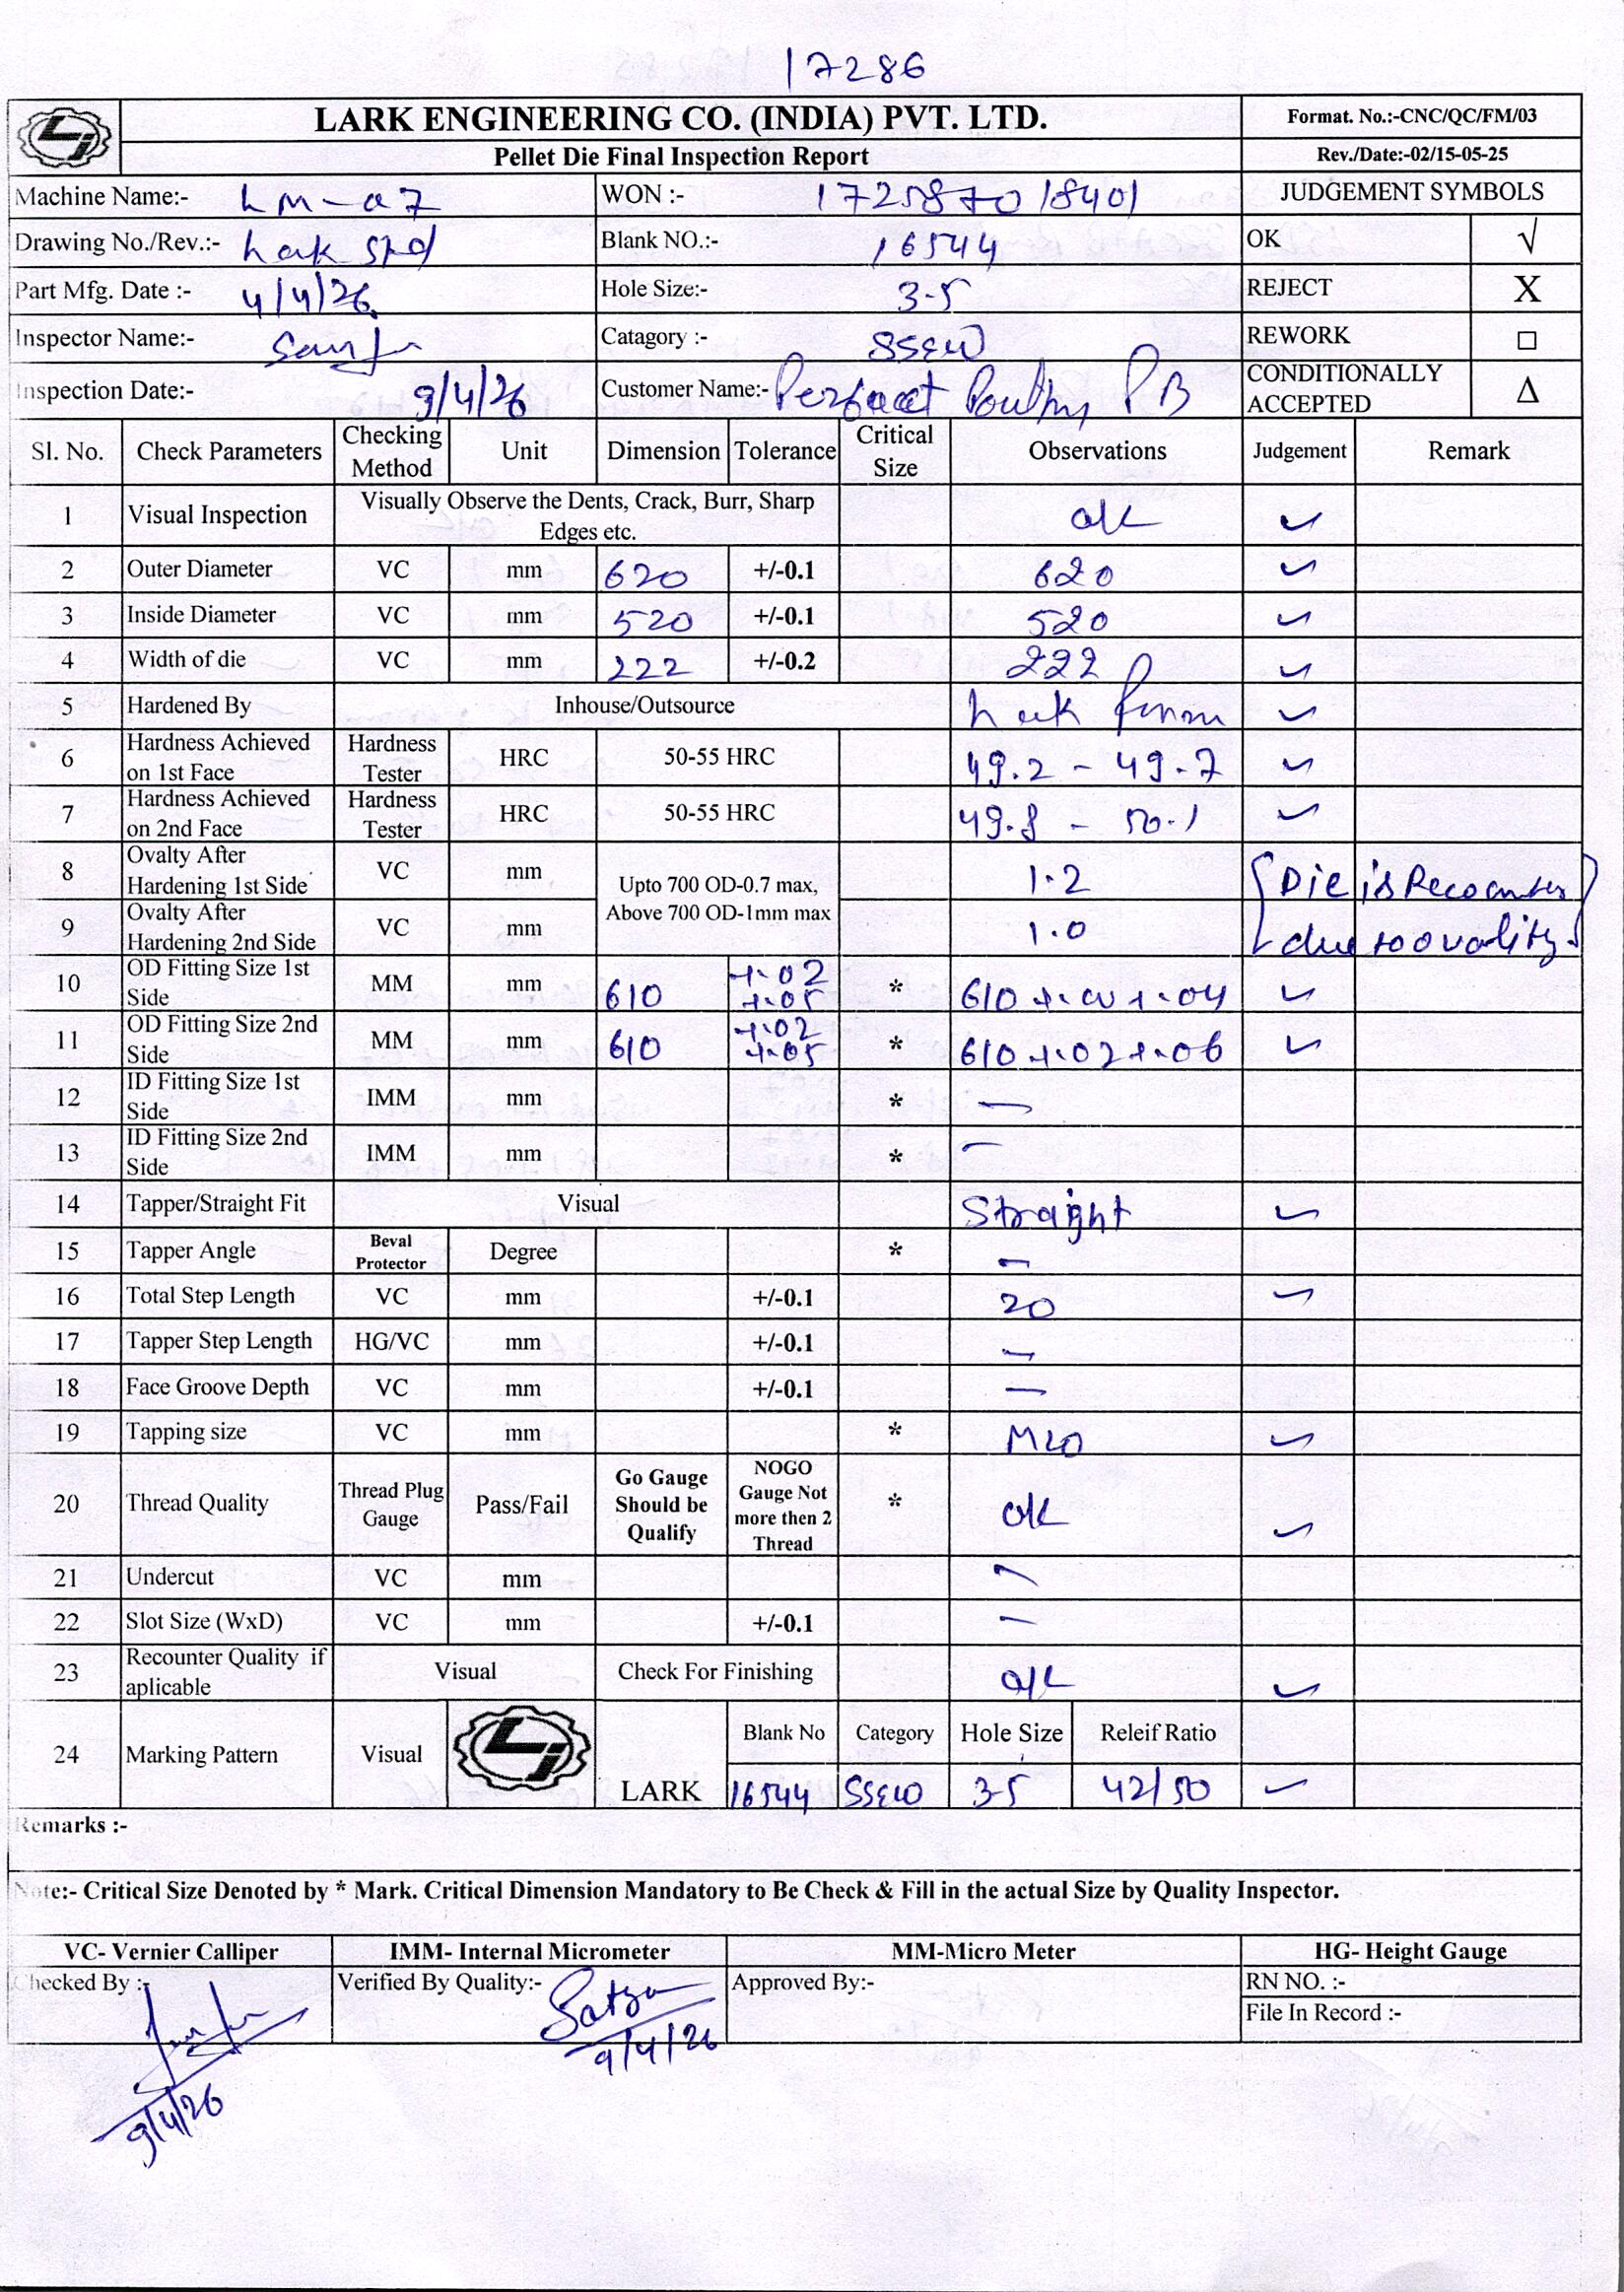 17286
LARK ENGINEERING CO. (INDIA) PVT. LTD.
Format. No.:-CNC/QC/FM/03
Pellet Die Final Inspection Report
Rev./Date:-02/15-05-25
Machine Name:- LM-07 WON :- JUDGEMENT SYMBOLS
Drawing No./Rev.:- Lark Std Blank NO.:- 16544 OK √
Part Mfg. Date :- 4/4/26 Hole Size:- 3.5 REJECT X
Inspector Name:- Catagory :- SSEW REWORK □
Inspection Date:- 9/4/26 Customer Name:- Poultry PB CONDITIONALLY ACCEPTED Δ
Sl. No. Check Parameters Checking Method Unit Dimension Tolerance Critical Size Observations Judgement Remark
1 Visual Inspection Visually Observe the Dents, Crack, Burr, Sharp Edges etc. ok ✓
2 Outer Diameter VC mm 620 +/-0.1 620 ✓
3 Inside Diameter VC mm 520 +/-0.1 520 ✓
4 Width of die VC mm 222 +/-0.2 222 ✓
5 Hardened By Inhouse/Outsource ✓
6 Hardness Achieved on 1st Face Hardness Tester HRC 50-55 HRC 49.2 - 49.7 ✓
7 Hardness Achieved on 2nd Face Hardness Tester HRC 50-55 HRC 49.8 - 50.1 ✓
8 Ovalty After Hardening 1st Side VC mm Upto 700 OD-0.7 max, Above 700 OD-1mm max 1.2 Die is Recounter
9 Ovalty After Hardening 2nd Side VC mm 1.0 due to ovality
10 OD Fitting Size 1st Side MM mm 610 +.02 +.05 * 610 +.00 +.04 ✓
11 OD Fitting Size 2nd Side MM mm 610 +.02 +.05 * 610 +.02 +.06 ✓
12 ID Fitting Size 1st Side IMM mm * —
13 ID Fitting Size 2nd Side IMM mm * —
14 Tapper/Straight Fit Visual Straight ✓
15 Tapper Angle Beval Protector Degree * —
16 Total Step Length VC mm +/-0.1 20 ✓
17 Tapper Step Length HG/VC mm +/-0.1 —
18 Face Groove Depth VC mm +/-0.1 —
19 Tapping size VC mm * M20 ✓
20 Thread Quality Thread Plug Gauge Pass/Fail Go Gauge Should be Qualify NOGO Gauge Not more then 2 Thread * ok ✓
21 Undercut VC mm —
22 Slot Size (WxD) VC mm +/-0.1 —
23 Recounter Quality if aplicable Visual Check For Finishing ok ✓
24 Marking Pattern Visual LARK Blank No Category Hole Size Releif Ratio
16544 SSEW 3.5 42/50 ✓
Remarks :-
Note:- Critical Size Denoted by * Mark. Critical Dimension Mandatory to Be Check & Fill in the actual Size by Quality Inspector.
VC- Vernier Calliper IMM- Internal Micrometer MM-Micro Meter HG- Height Gauge
Checked By :- Verified By Quality:- Approved By:- RN NO. :-
File In Record :-
9/4/26 9/4/26